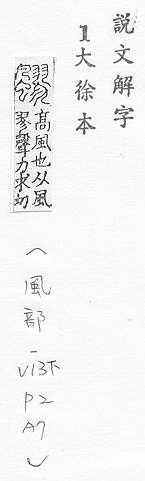 説文解字
1大徐本
飂
高風也从風
翏聲力求切
(風部-V13下P2A7)